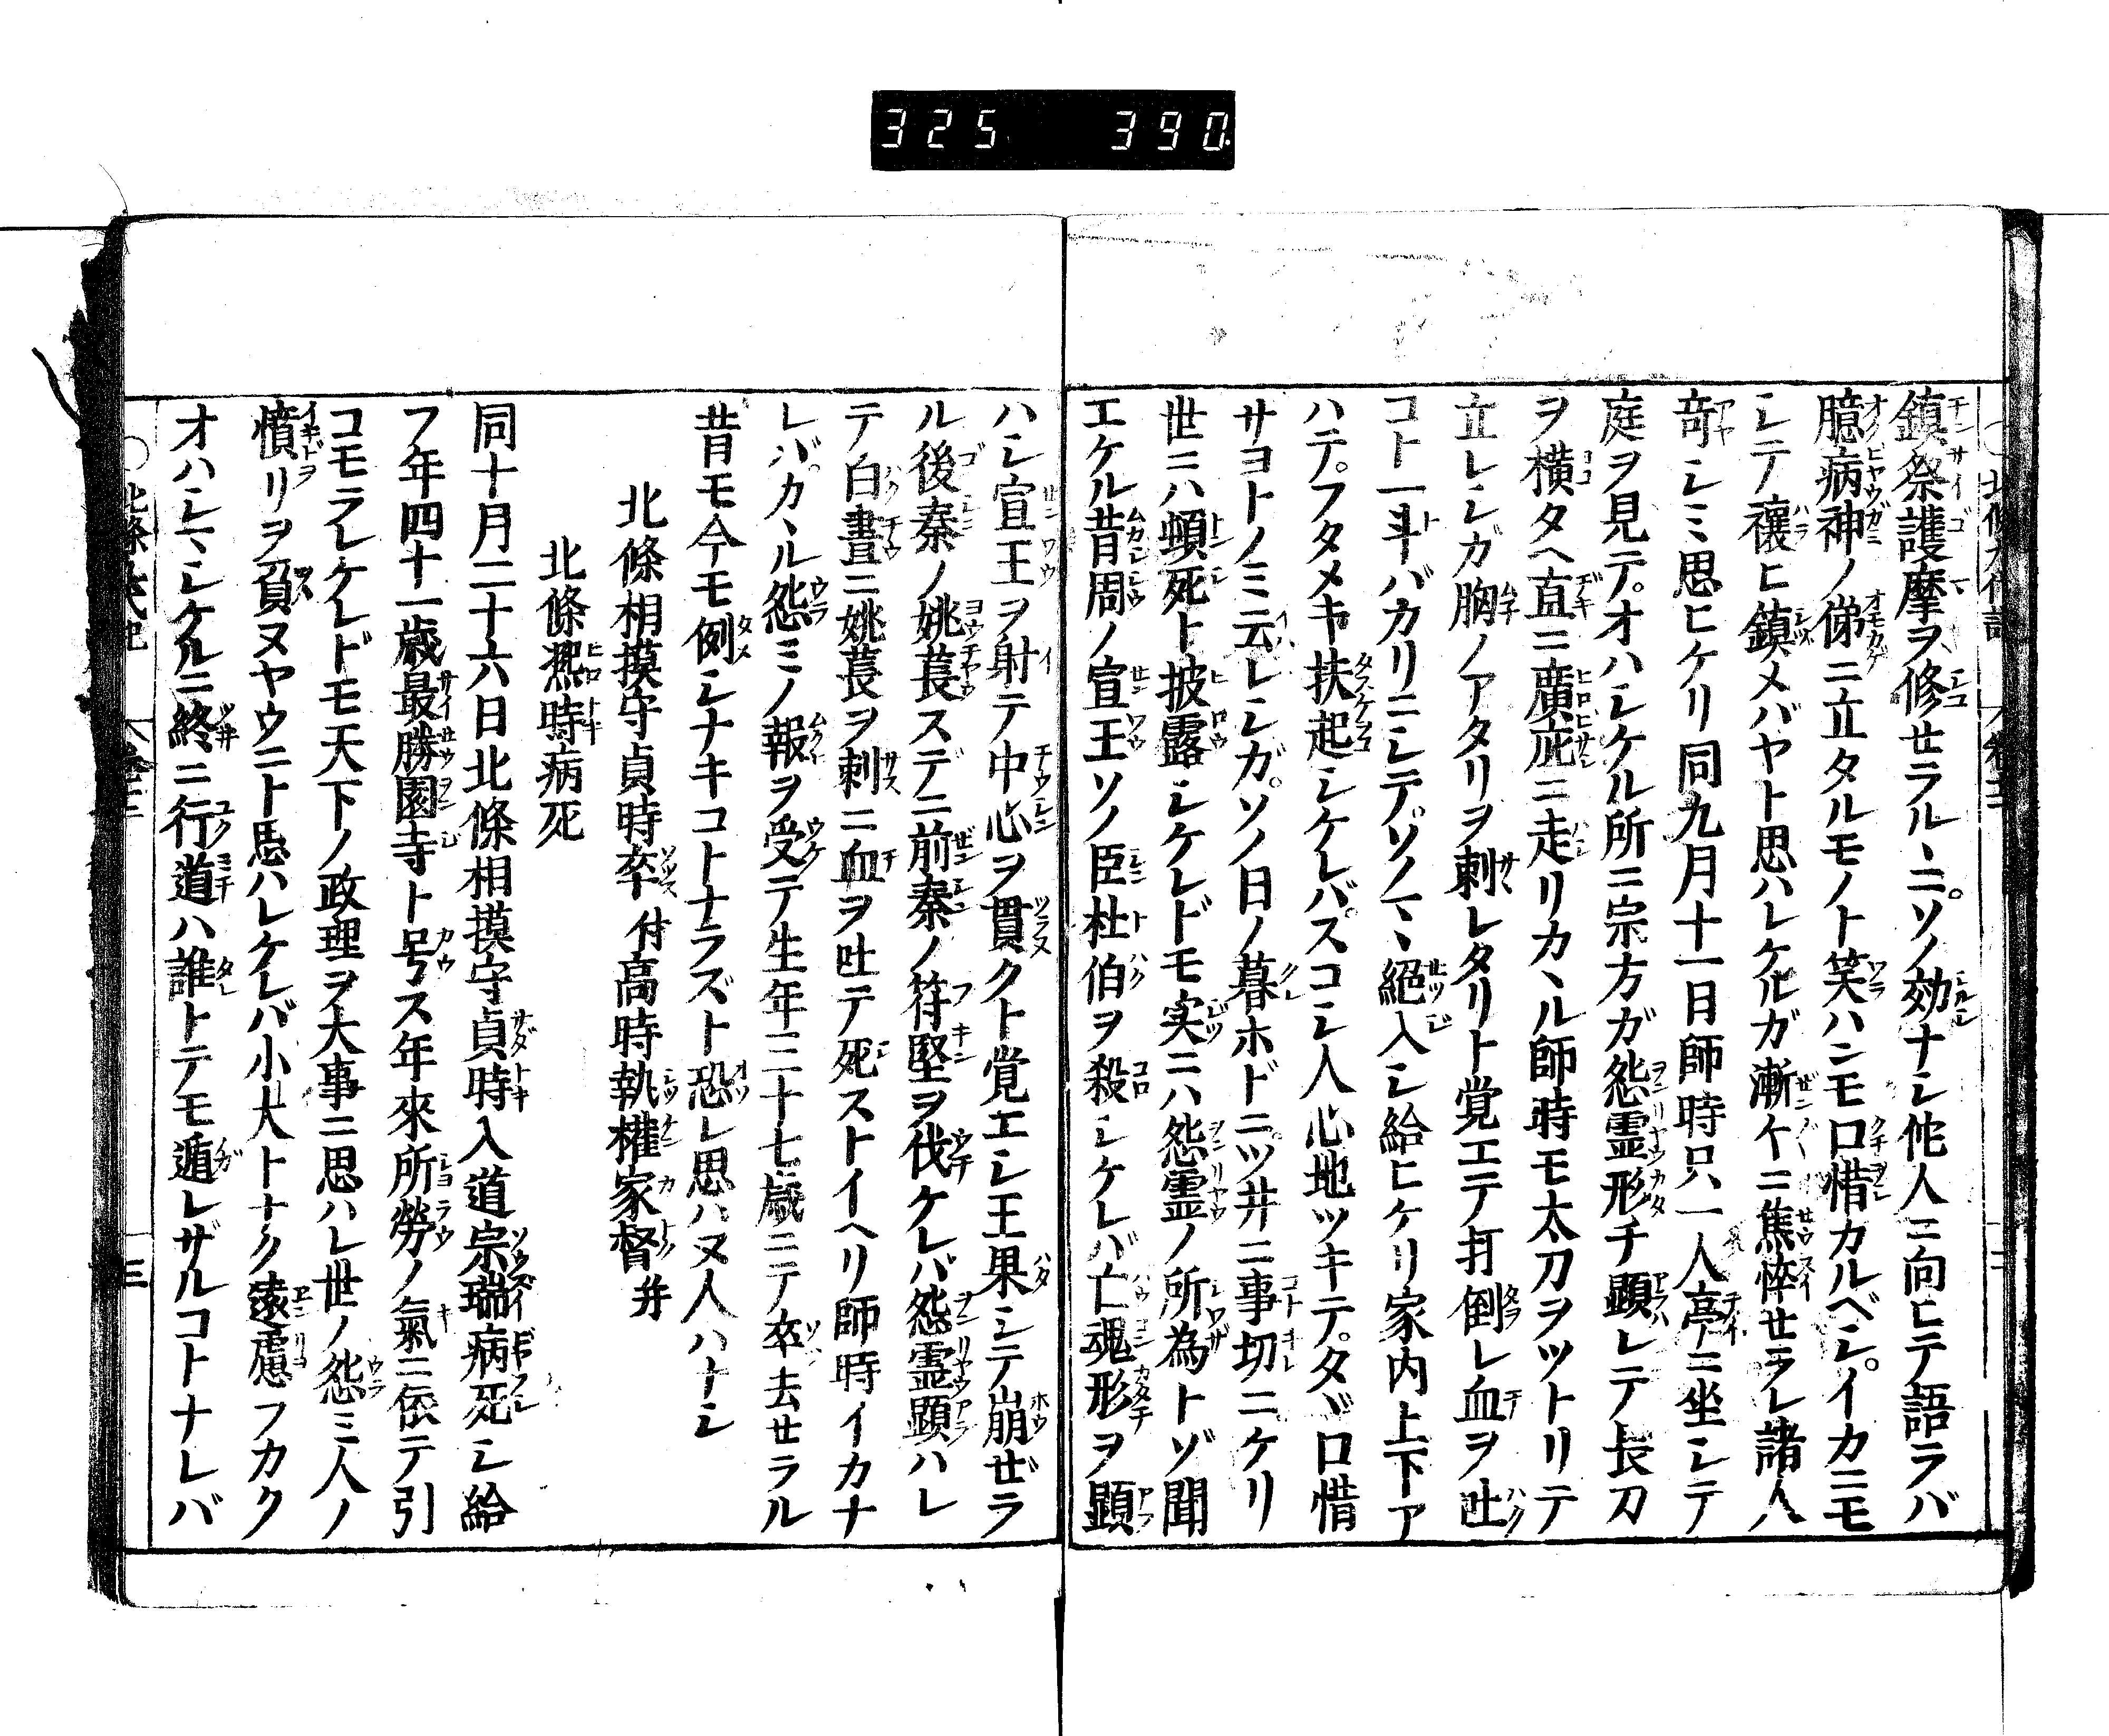 325 390
鎮祭護摩ヲ修セラルヽニ。ソノ効ナシ他人ニ向ヒテ語ラバ
臆病神ノ俤ニ立タルモノト笑ハンモ口惜カルベシ。イカニモ
シテ禳ヒ鎮メバヤト思ハレケルガ漸々ニ焦悴セラレ諸人
奇シミ思ヒケリ同九月十一日師時只一人亭ニ坐シテ
庭ヲ見テ。オハシケル所ニ宗方ガ怨霊形チ顕レテ長刀
ヲ横タヘ直ニ廣庇ニ走リカヽル師時モ太刀ヲツトリテ
立レシガ胸ノアタリヲ刺レタリト覚エテ打倒レ血ヲ吐
コト一斗バカリニシテ。ソノマヽ絶入シ給ヒケリ家内上下ア
ハテ。フタメキ扶起シケレバ。スコシ人心地ツキテ。タヾ口惜
サヨトノミ云レシガ。ソノ日ノ暮ホドニ。ツ井ニ事切ニケリ
世ニハ頓死ト披露シケレドモ実ニハ怨霊ノ所為トゾ聞
エケル昔周ノ宣王ソノ臣杜伯ヲ殺シケレバ亡魂形ヲ顕
ハシ宣王ヲ射テ中心ヲ貫クト覚エシ王果シテ崩ゼラ
ル後秦ノ姚萇スデニ前秦ノ符堅ヲ伐ケレバ怨霊顕ハレ
テ白晝ニ姚萇ヲ刺ニ血ヲ吐テ死ストイヘリ師時イカナ
レバ。カヽル怨ミノ報ヲ受テ生年三十七歳ニテ卒去セラル
昔モ今モ例シナキコトナラズト恐レ思ハヌ人ハナシ
北條相摸守貞時卒 付高時執權家督 并
北條凞時病死
同十月二十六日北條相摸守貞時入道宗瑞病死シ給
フ年四十一歳最勝園寺ト号ス年來所勞ノ氣ニ依テ引
コモラレケレドモ天下ノ政理ヲ大事ニ思ハレ世ノ怨ミ人ノ
憤リヲ負ヌヤウニト思ハレケレバ小大トナク遠慮フカク
オハシマシケルニ終ニ行道ハ誰トテモ遁レザルコトナレバ
三